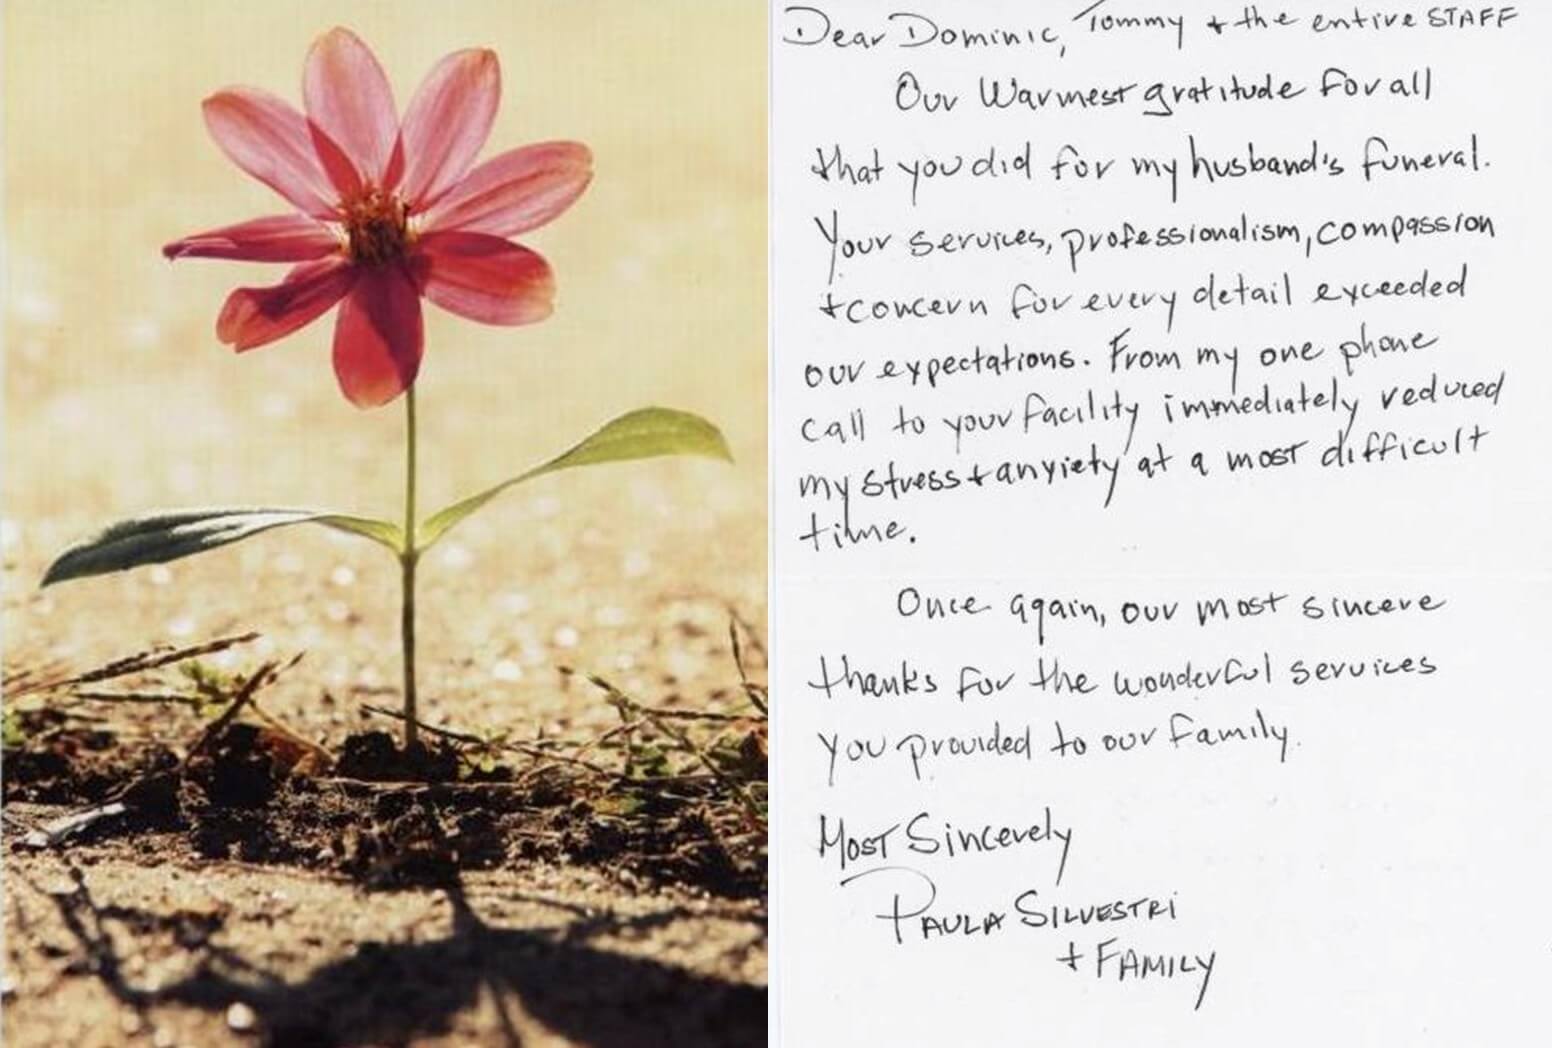 Dear Dominic, Tommy + the entire STAFF
Our Warmest gratitude for all
that you did for my husband's funeral.
Your services, professionalism, compassion
+ concern for every detail exceeded
our expectations. From my one phone
call to your facility immediately reduced
my stress + anxiety at a most difficult
time.
Once again, our most sincere
thanks for the wonderful services
you provided to our family.
Most Sincerely
PAULA SILVESTRI
+ FAMILY